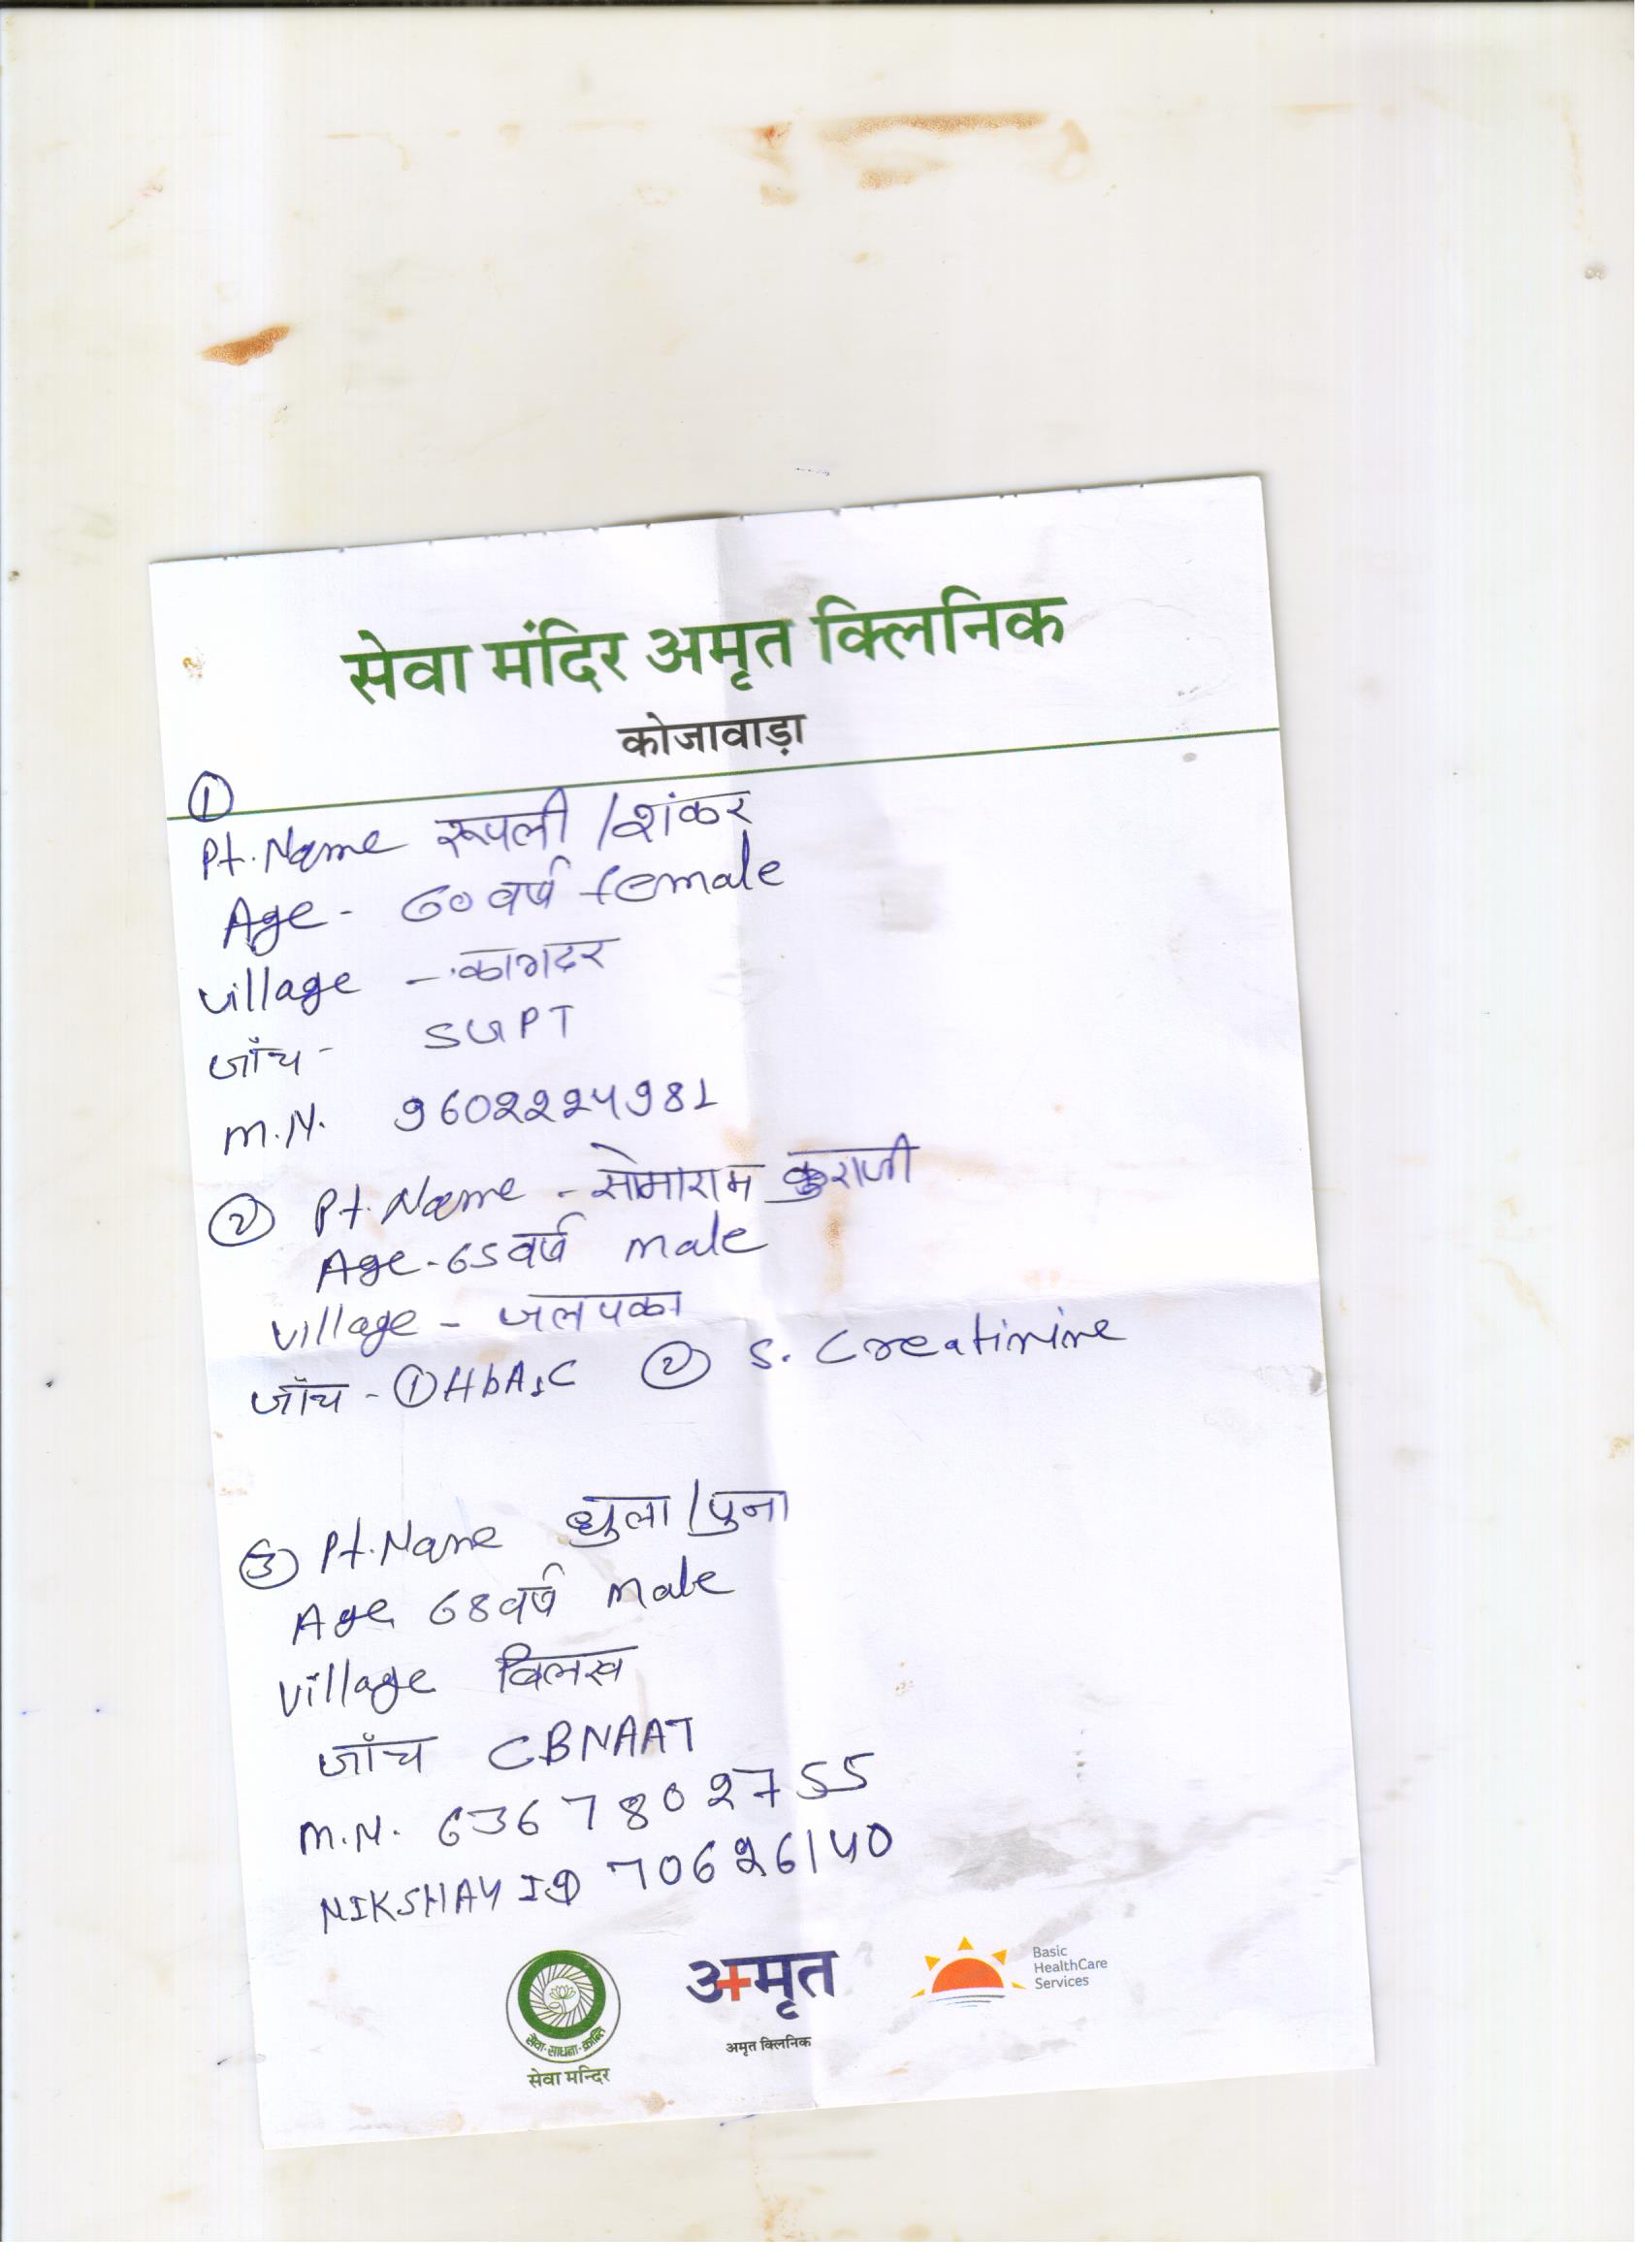 सेवा मंदिर अमृत क्लिनिक
कोजावाड़ा
①
Pt. Name रूपली / शंकर
Age - 60 वर्ष female
village - कागदर
जाँच - SGPT
M.N. 9602224981
② Pt. Name - सोमाराम कुराजी
Age - 65 वर्ष male
village - जलपका
जाँच - ① HbA1C ② S. Creatinine
③ Pt. Name धुला / पुना
Age 68 वर्ष male
village विलख
जाँच CBNAAT
M.N. 6367802755
NIKSHAY ID 70626140
सेवा-साधना-क्रान्ति
सेवा मन्दिर
अमृत
अमृत क्लिनिक
Basic
HealthCare
Services